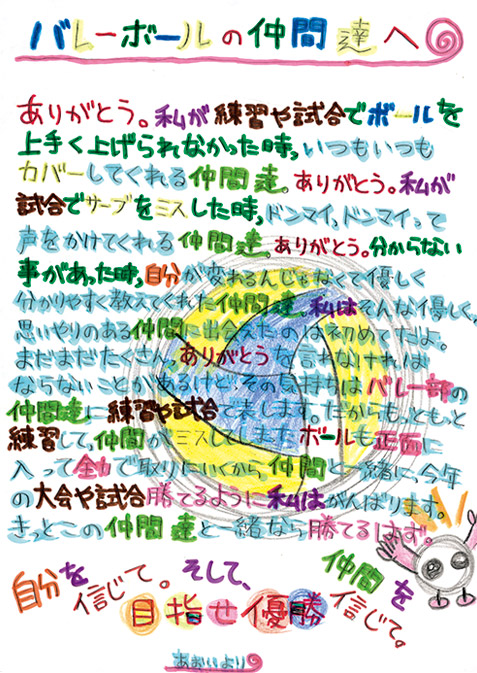 バレーボールの仲間達へ
ありがとう。私が練習や試合でボールを
上手く上げられなかった時,いつもいつも
カバーしてくれる仲間達。ありがとう。私が
試合でサーブをミスした時,ドンマイ,ドンマイって
声をかけてくれる仲間達。ありがとう。分からない
事があった時,自分が変わるんじゃなくて優しく
分かりやすく教えてくれた仲間達。私はそんな優しく,
思いやりのある仲間に出会えたのは初めてだよ。
まだまだたくさん,ありがとうを言わなければ
ならないことがあるけど,その気持ちはバレー部の
仲間達に練習や試合で表します。だからも,ともっと
練習して,仲間がミスしてしまたボールも正面に
入って全力で取りにいくから,仲間と一緒に,今年
の大会や試合勝てるように私はがんばります。
きっとこの仲間達と一緒なら勝てるはず。
自分を信じて。そして、仲間を信じて。
目指せ優勝
あおいより